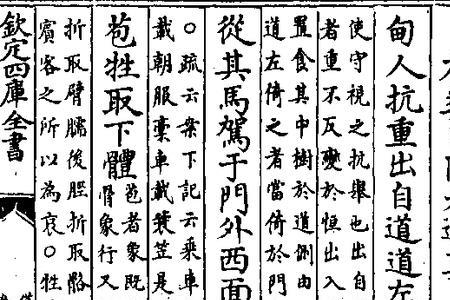 甸人抗重出自道道左
使守視之抗舉也出
者重不反變於恒出入
置食其中樹於道側由
道左倚之者當倚於門
從其馬駕于門外西面
○疏云案下記云乘車
載朝服槀車載簑笠是
苞牲取下體
苞者象既
骨象行又
折取臂臑後脛折取骼
賓客之所以為哀○牲
欽定四庫全書